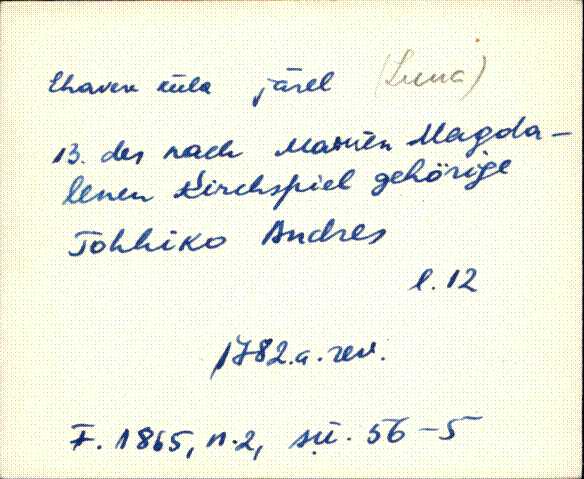 Ehavere küla järel (Luua)
13. des nach Marien Magda-
lenen Kirchspiel gehörige
Tohhiko Andres
l. 12
1782.a. rev.
F. 1865, n. 2, sü. 56-5